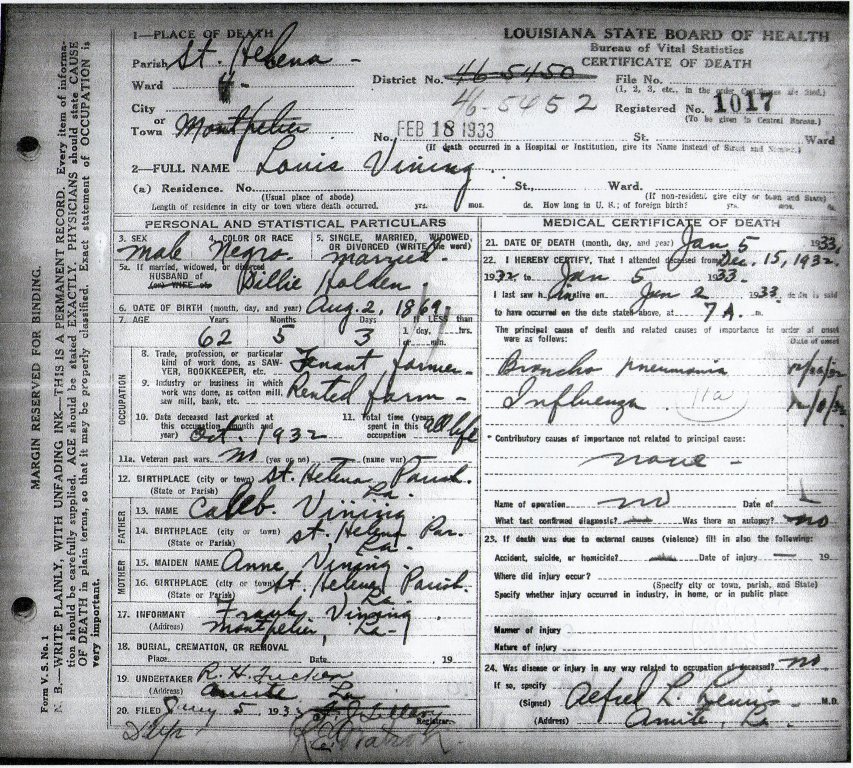 LOUISIANA STATE BOARD OF HEALTH
Bureau of Vital Statistics
CERTIFICATE OF DEATH
1—PLACE OF DEATH
Parish St. Helena -
Ward 4-
City
or
Town Montpelier
District No. 46-5450
46-5452
File No.
(1, 2, 3, etc., in the order Certificates are filed.)
Registered No. 1017
(To be given in Central Bureau.)
No. FEB 18 1933 St. Ward
(If death occurred in a Hospital or Institution, give its Name instead of Street and Number.)
2—FULL NAME Louis Vining.
(a) Residence. No. St., Ward.
(Usual place of abode) (If non-resident give city or town and State)
Length of residence in city or town where death occurred. yrs. mos. ds. How long in U. S.; of foreign birth? yrs. mos. ds.
PERSONAL AND STATISTICAL PARTICULARS
3. SEX 4. COLOR OR RACE 5. SINGLE, MARRIED, WIDOWED,
OR DIVORCED (WRITE the word)
male Negro. married.
5a. If married, widowed, or divorced
HUSBAND OF
(or) WIFE of Billie Holden
6. DATE OF BIRTH (month, day, and year) Aug. 2, 1869
7. AGE Years Months Days If LESS than
62 5 3 1 day, hrs.
or min.
OCCUPATION
8. Trade, profession, or particular
kind of work done, as SAW-
YER, BOOKKEEPER, etc. Tenant farmer
9. Industry or business in which
work was done, as cotton mill,
saw mill, bank, etc. Rented farm -
10. Date deceased last worked at
this occupation (month and
year) Oct. 1932
11. Total time (years)
spent in this
occupation all life
11a. Veteran past wars. no (yes or no) (name war)
12. BIRTHPLACE (city or town) St. Helena Parish.
(State or Parish) La.
FATHER
13. NAME Caleb. Vining
14. BIRTHPLACE (city or town) St. Helena Par.
(State or Parish) La.
MOTHER
15. MAIDEN NAME Anne Vining.
16. BIRTHPLACE (city or town) St. Helena Parish.
(State or Parish) La.
17. INFORMANT Frank Vining
(Address) Montpelier, La.
18. BURIAL, CREMATION, OR REMOVAL
Place Date 19
19. UNDERTAKER R. H. Tucker
(Address) Amite, La.
20. FILED 5 193
Registrar.
MEDICAL CERTIFICATE OF DEATH
21. DATE OF DEATH (month, day, and year) Jan 5 1933.
22. I HEREBY CERTIFY, That I attended deceased from Dec. 15, 1932.
1932 to Jan 5 1933.
I last saw h im alive on Jan 2 1933 death is said
to have occurred on the date stated above, at 7 A. m.
The principal cause of death and related causes of importance in order of onset
were as follows:
Date of onset
Broncho pneumonia
Influenza 11a
* Contributory causes of importance not related to principal cause:
none -
Name of operation no Date of
What test confirmed diagnosis? Was there an autopsy? no
23. If death was due to external causes (violence) fill in also the following:
Accident, suicide, or homicide? Date of injury 19
Where did injury occur?
(Specify city or town, parish, and State)
Specify whether injury occurred in industry, in home, or in public place
Manner of injury
Nature of injury
24. Was disease or injury in any way related to occupation of deceased? no.
If so, specify
(Signed) Alfred L. M.D.
(Address) Amite, La.
MARGIN RESERVED FOR BINDING.
Form V. S. No. 1
N. B.—WRITE PLAINLY, WITH UNFADING INK—THIS IS A PERMANENT RECORD. Every item of informa-
tion should be carefully supplied. AGE should be stated EXACTLY. PHYSICIANS should state CAUSE
OF DEATH in plain terms, so that it may be properly classified. Exact statement of OCCUPATION is
very important.